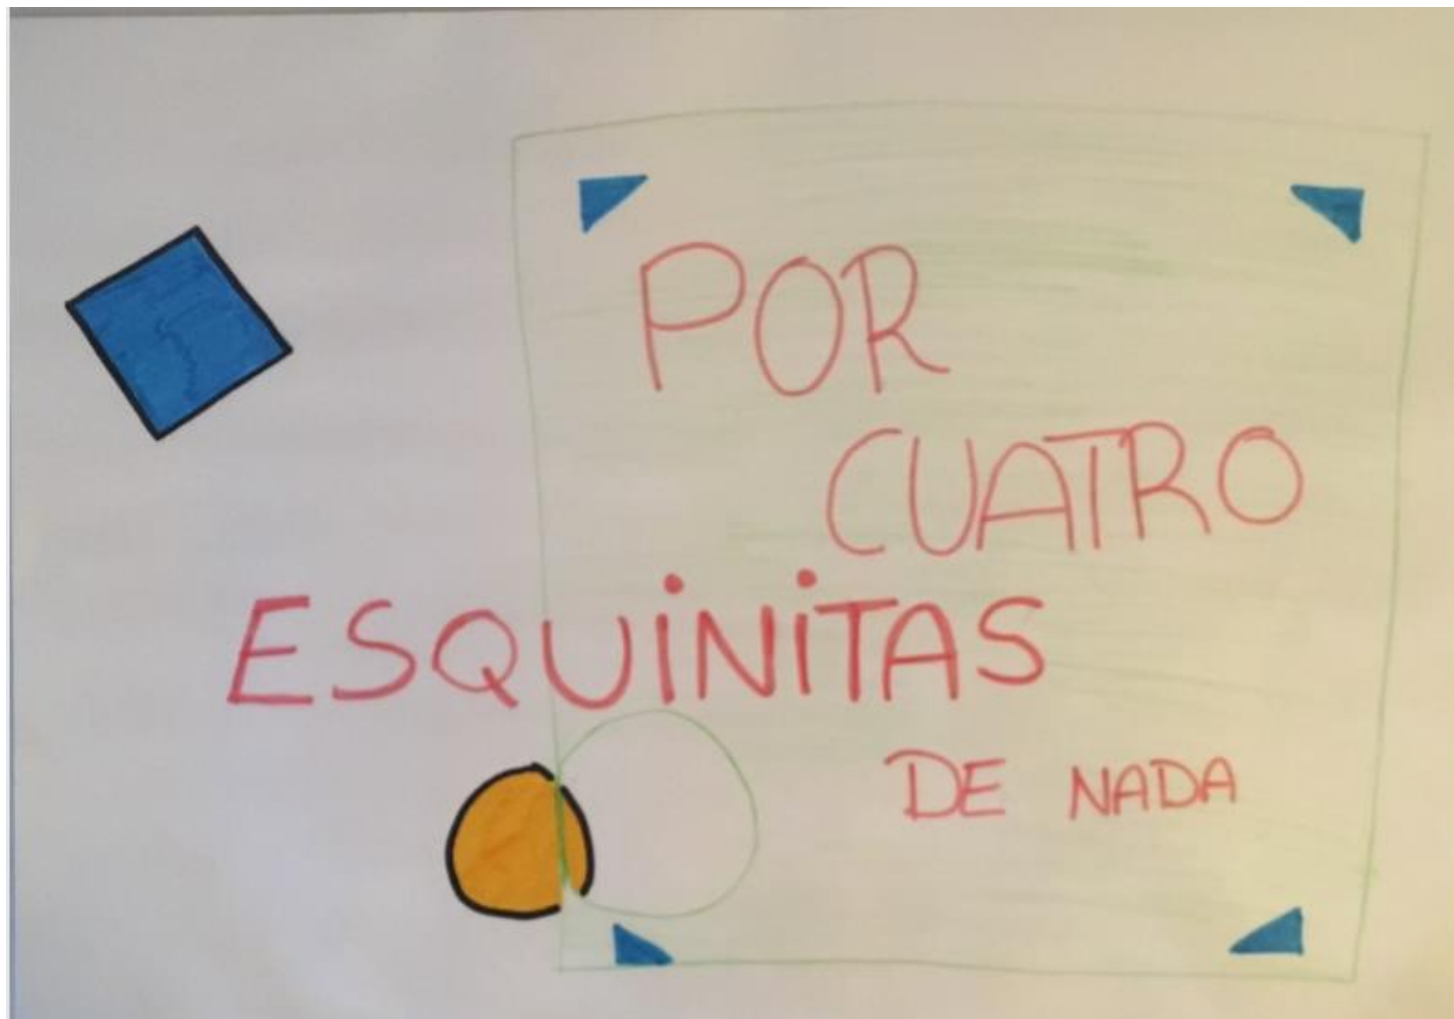 POR
CUATRO
ESQUiNiTAS
DE NADA